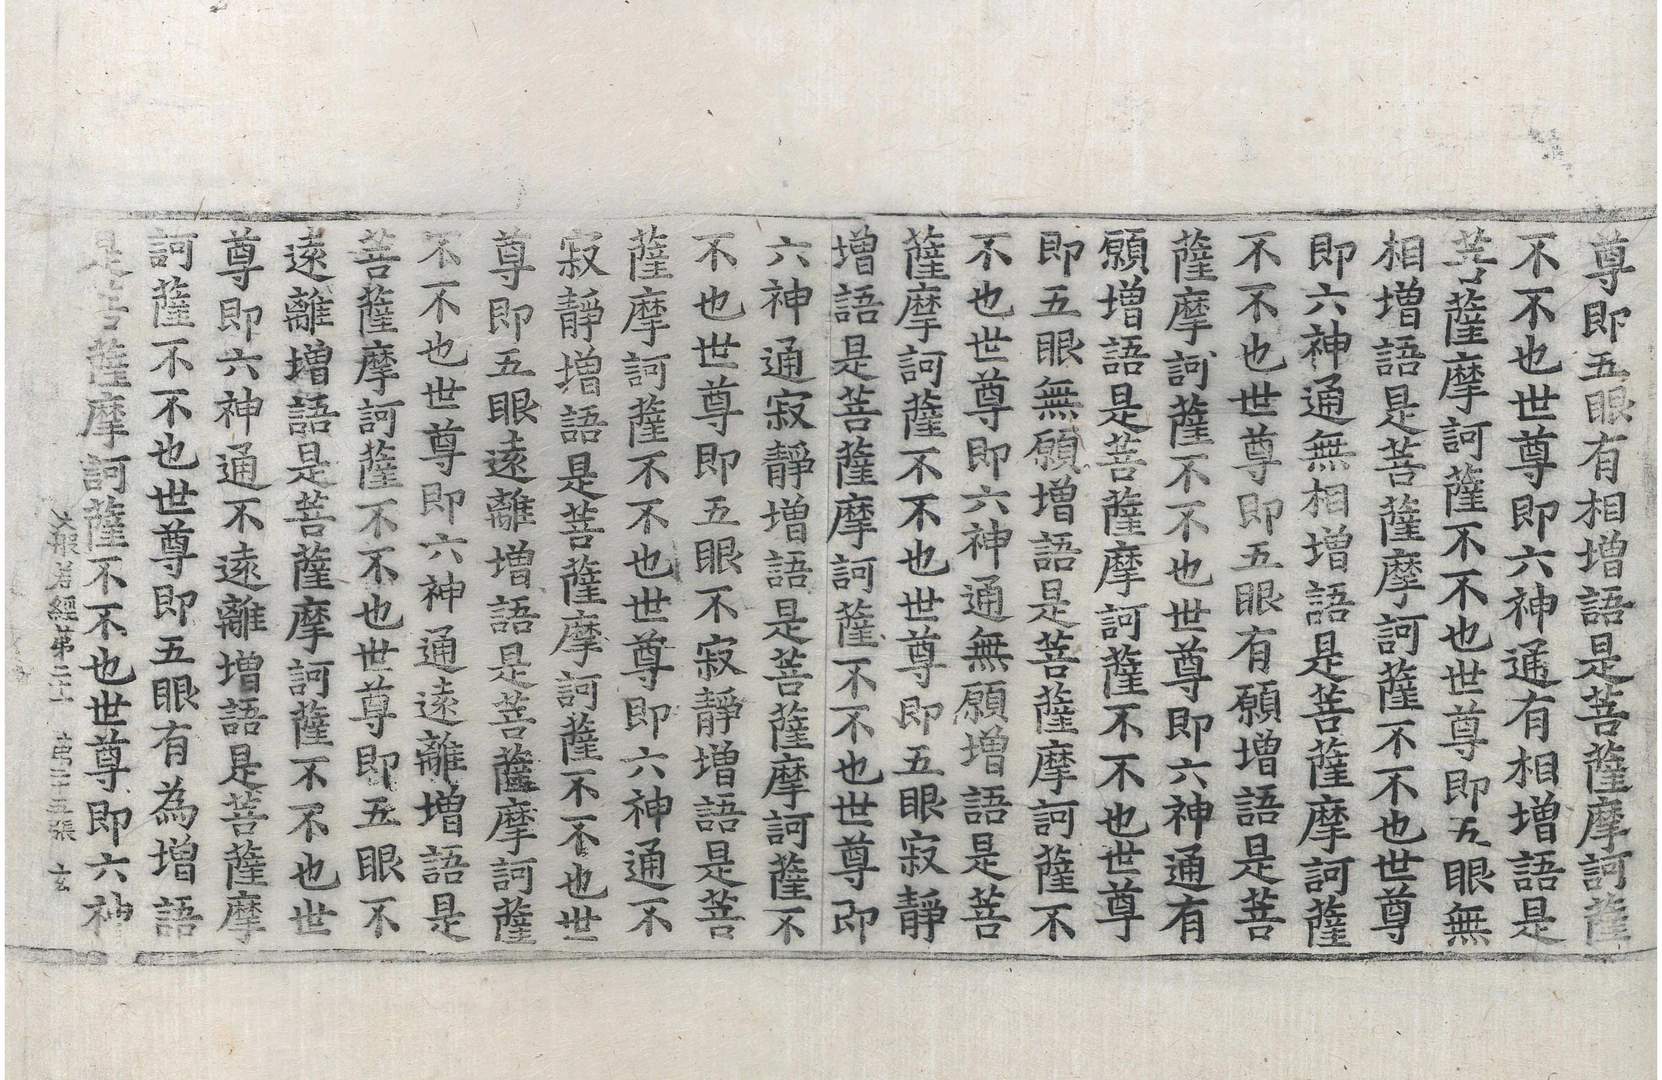 尊即五眼有相增語是菩薩摩訶薩
不不也世尊即六神通有相增語是
菩薩摩訶薩不不也世尊即五眼無
相增語是菩薩摩訶薩不不也世尊
即六神通無相增語是菩薩摩訶薩
不不也世尊即五眼有願增語是菩
薩摩訶薩不不也世尊即六神通有
願增語是菩薩摩訶薩不不也世尊
即五眼無願增語是菩薩摩訶薩不
不也世尊即六神通無願增語是菩
薩摩訶薩不不也世尊即五眼寂靜
增語是菩薩摩訶薩不不也世尊即
六神通寂靜增語是菩薩摩訶薩不
不也世尊即五眼不寂靜增語是菩
薩摩訶薩不不也世尊即六神通不
寂靜增語是菩薩摩訶薩不不也世
尊即五眼遠離增語是菩薩摩訶薩
不不也世尊即六神通遠離增語是
菩薩摩訶薩不不也世尊即五眼不
遠離增語是菩薩摩訶薩不不也世
尊即六神通不遠離增語是菩薩摩
訶薩不不也世尊即五眼有為增語
是菩薩摩訶薩不不也世尊即六神
大般若經第二十 五張 玄